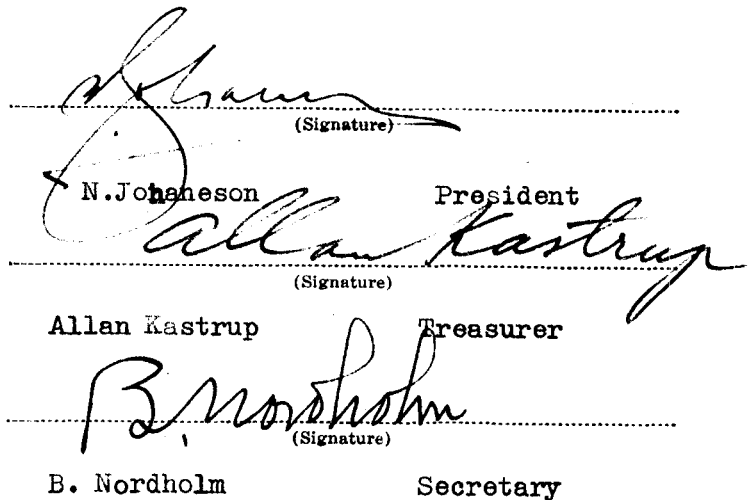 N Johanson
(Signature)
N.Johaneson President
Allan Kastrup
(Signature)
Allan Kastrup Treasurer
B. Nordholm
(Signature)
B. Nordholm Secretary